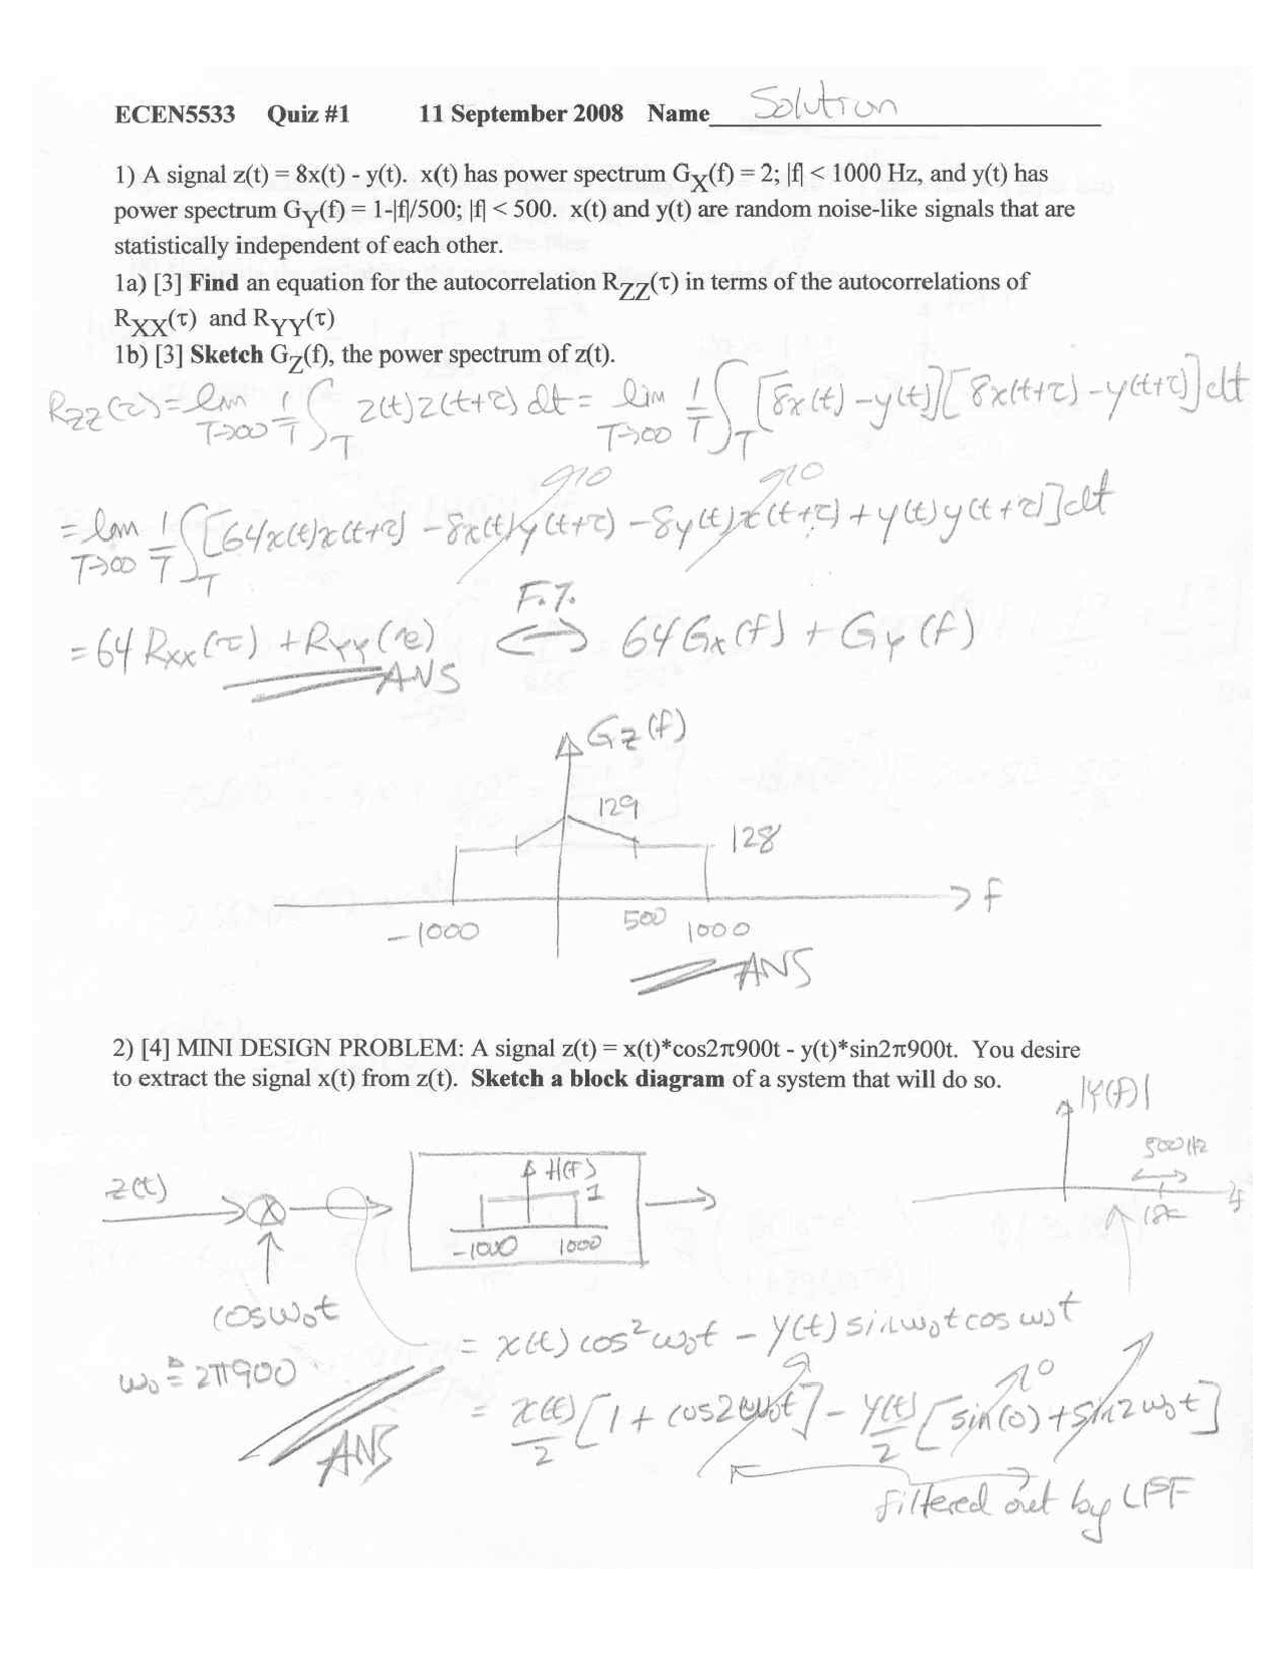 ECEN5533 Quiz #1 11 September 2008 Name Solution
1) A signal z(t) = 8x(t) - y(t). x(t) has power spectrum G_X(f) = 2; |f| < 1000 Hz, and y(t) has
power spectrum G_Y(f) = 1-|f|/500; |f| < 500. x(t) and y(t) are random noise-like signals that are
statistically independent of each other.
1a) [3] Find an equation for the autocorrelation R_ZZ(τ) in terms of the autocorrelations of
R_XX(τ) and R_YY(τ)
1b) [3] Sketch G_Z(f), the power spectrum of z(t).
R_ZZ(τ) = lim T→∞ 1/T ∫_T z(t)z(t+τ) dt = lim T→∞ 1/T ∫_T [8x(t) - y(t)][8x(t+τ) - y(t+τ)] dt
= lim T→∞ 1/T ∫_T [64x(t)x(t+τ) - 8x(t)y(t+τ) - 8y(t)x(t+τ) + y(t)y(t+τ)] dt
0 0
= 64 R_XX(τ) + R_YY(τ) F.T. ⟺ 64 G_X(f) + G_Y(f)
ANS
G_Z(f)
129
128
f
-1000 500 1000
ANS
2) [4] MINI DESIGN PROBLEM: A signal z(t) = x(t)*cos2π900t - y(t)*sin2π900t. You desire
to extract the signal x(t) from z(t). Sketch a block diagram of a system that will do so.
|Y(f)|
500 Hz
f
z(t) X H(f) 1
-1000 1000
cosω₀t
ω₀ ≜ 2π900
= x(t) cos²ω₀t - y(t) sinω₀t cosω₀t
= x(t)/2 [1 + cos2ω₀t] - y(t)/2 [sin(0) + sin2ω₀t]
0
ANS
filtered out by LPF